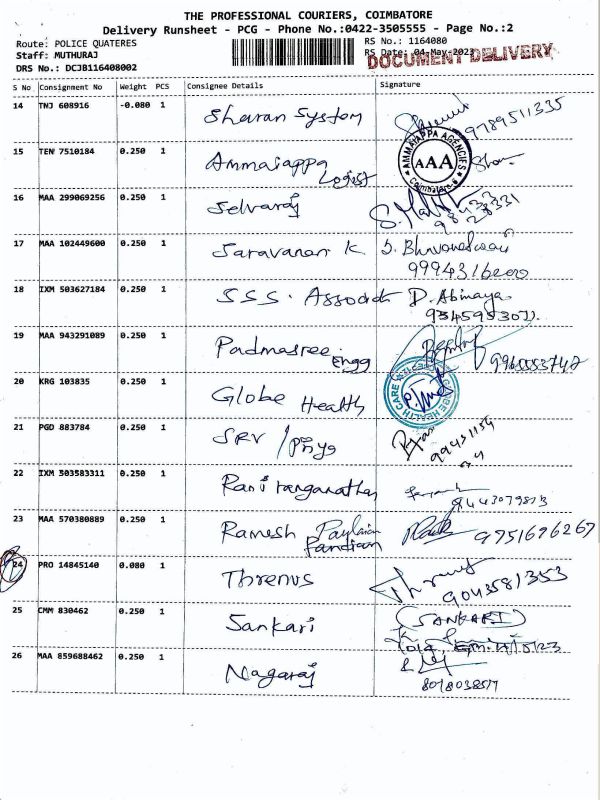 THE PROFESSIONAL COURIERS, COIMBATORE
Delivery Runsheet - PCG - Phone No.:0422-3505555 - Page No.:2
Route: POLICE QUATERES
RS No.: 1164080
Staff: MUTHURAJ
RS Date: 04-May-2023
DOCUMENT DELIVERY
DRS No.: DCJB116408002
S No Consignment No Weight PCS Consignee Details Signature
14 TNJ 608916 -0.080 1 Sharan System
9789511335
15 TEN 7510184 0.250 1 Ammaiappa Logist
AMMAIAPPA AGENCIES
AAA
Coimbatore-6
16 MAA 299069256 0.250 1 Selvaraj
98433
28331
17 MAA 102449600 0.250 1 Saravanan K
18 IXM 503627184 0.250 1 S.S.S. Associate D. Abinaya
19 MAA 943291089 0.250 1 Padmasree Engg
20 KRG 103835 0.250 1 Globe Health
GLOBE HEALTH CARE
21 PGD 883784 0.250 1 SRV / Priya
22 IXM 303583311 0.250 1 Rani ranganathan
8443079813
23 MAA 570380889 0.250 1 Ramesh Pandian
9751696267
24 PRO 14845140 0.080 1 Threnus
9043581353
25 CMM 830462 0.250 1 Sankari (SANKARI)
26 MAA 859688462 0.250 1 Nagaraj